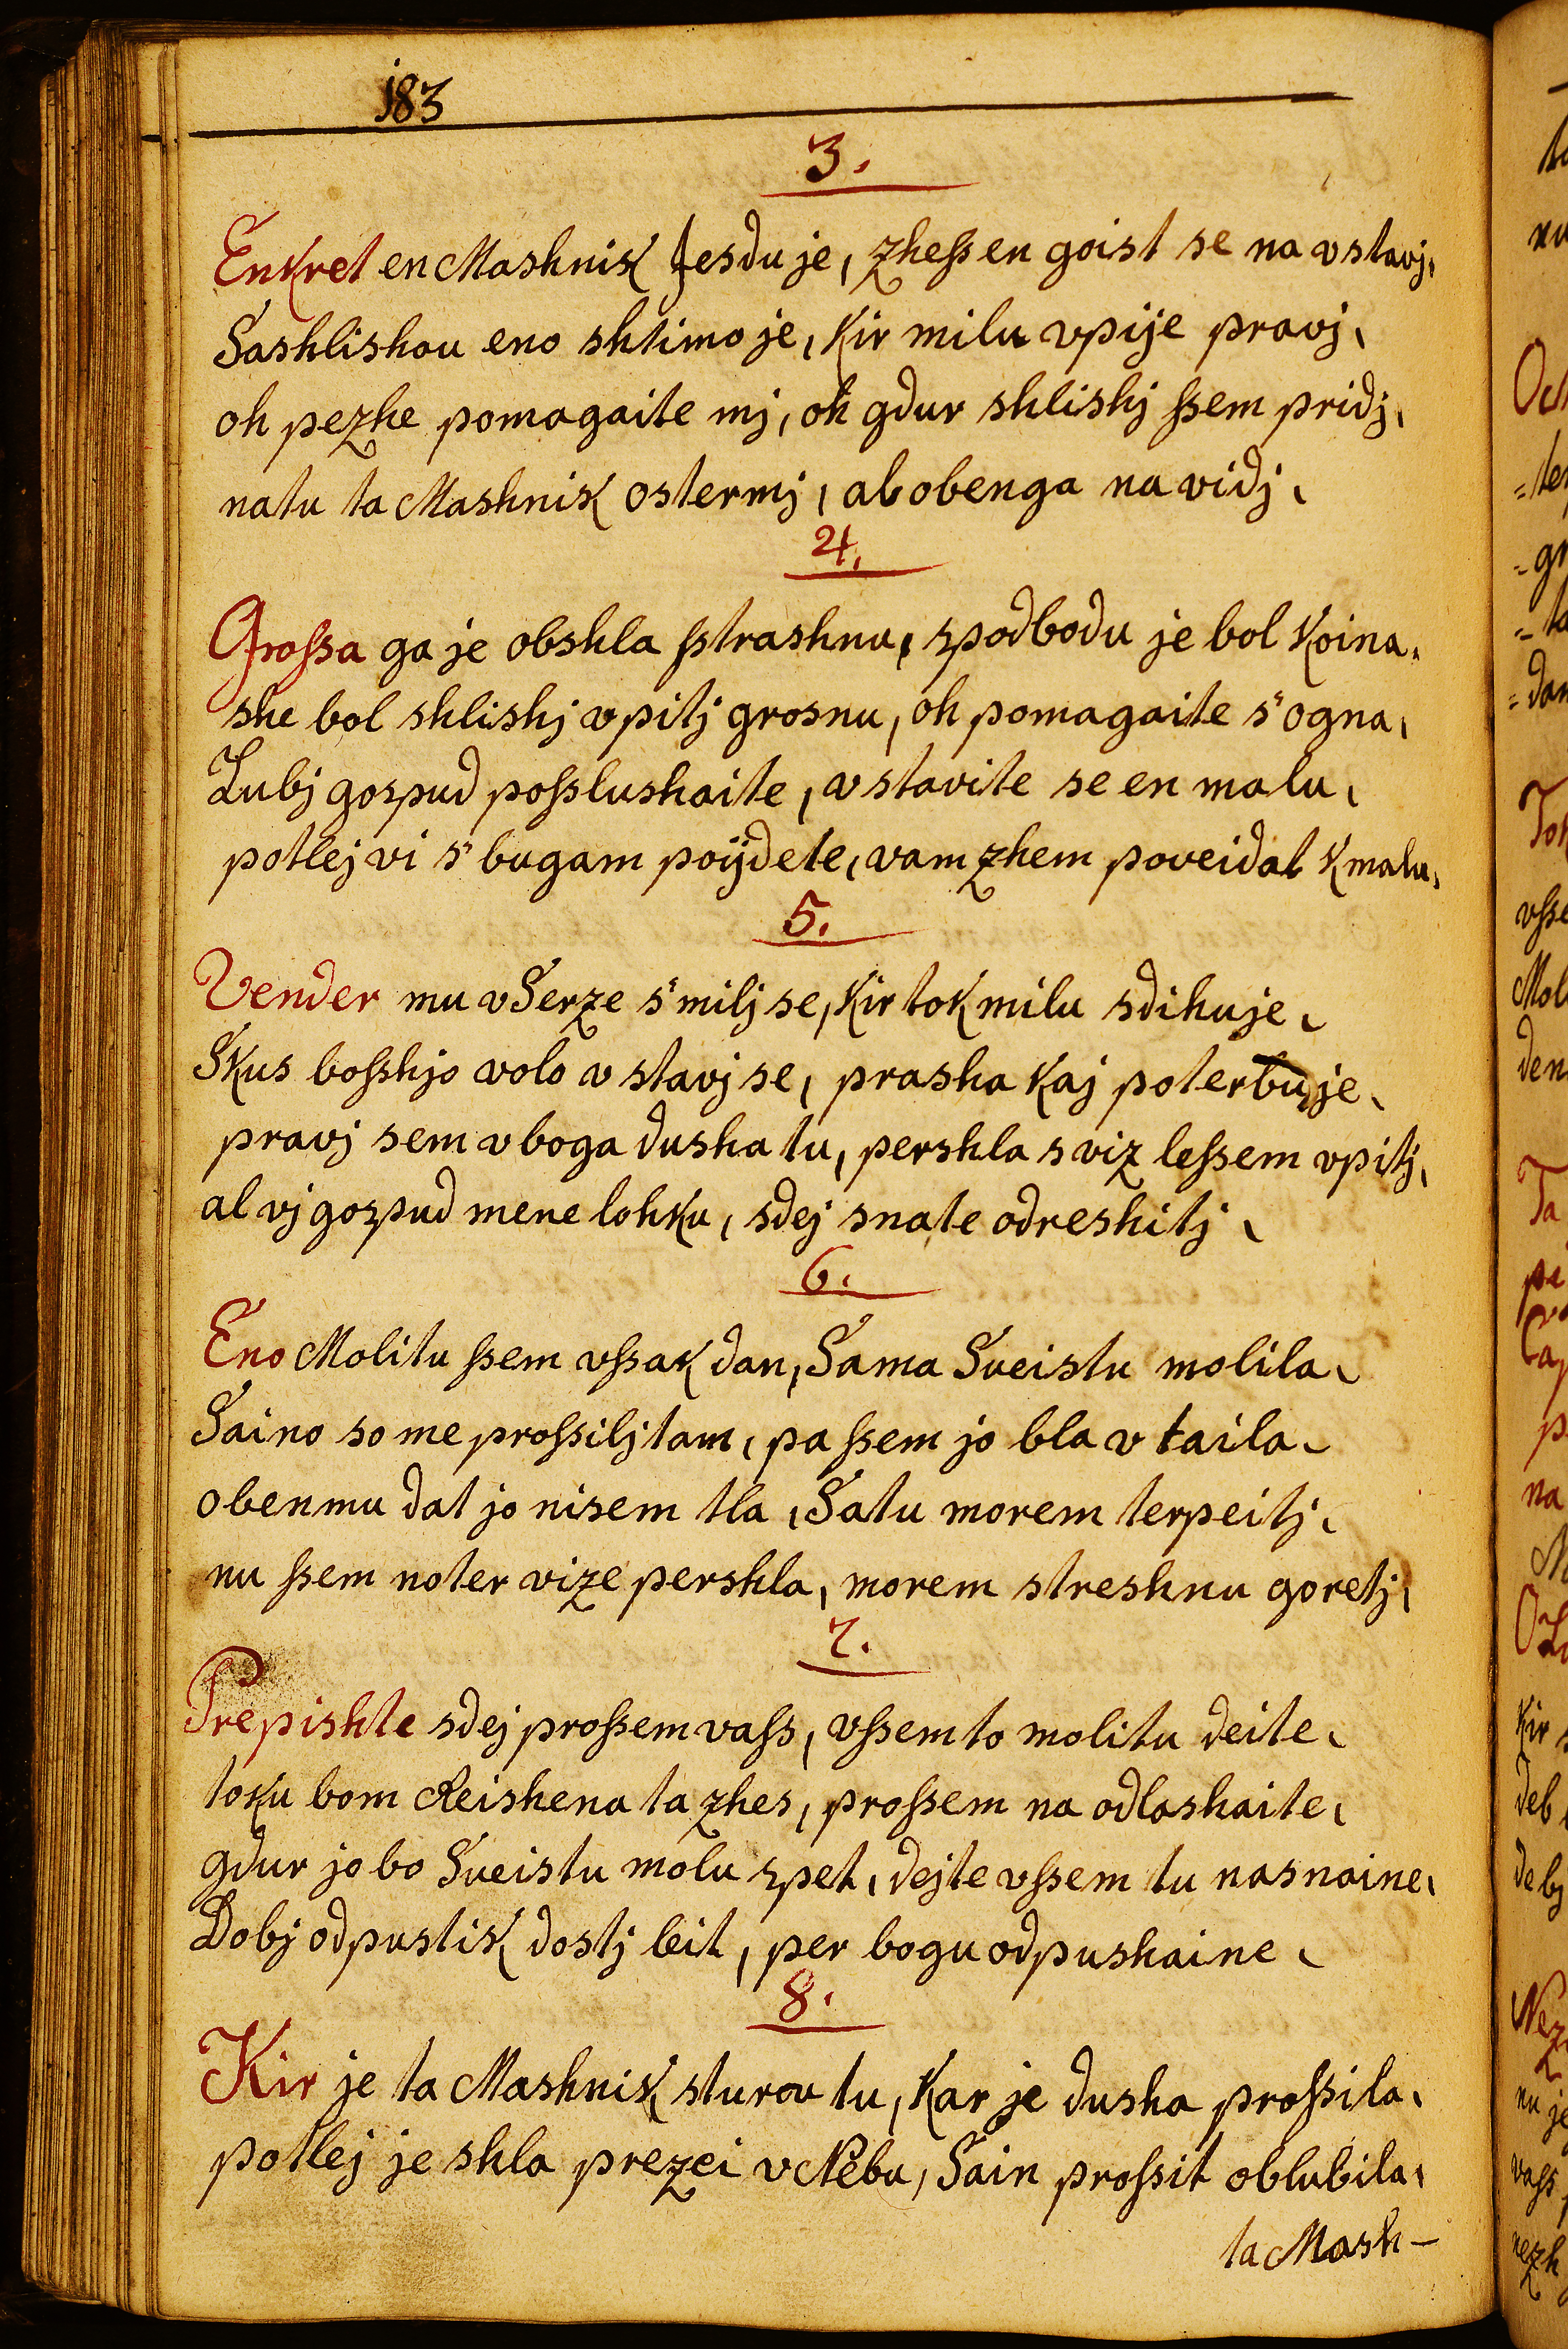 183
3.
Enkret en Mashnik Jesdu je, zhess en goist se na vstavj,
Sashlishou eno shtimo je, kir milu vpije pravj,
oh pezhe pomagaite mj, oh gdur shlishj ssem pridj,
natu ta Mashnik ostermj, ab obenga na vidj,
4.
Grossa ga je obshla sstrashnu, spodbodu je bol koina,
she bol shlishj vpitj grosnu, oh pomagaite s'ogna,
Lubj gospud posslushaite, vstavite se en malu,
potlej vi s'bugam poijdete, vam zhem poveidat kmalu,
5.
Vender mu v Serze s'milj se, kir tok milu sdihuje,
Skus bosshjo volo vstavj se, prasha kaj poterbuje,
pravj sem vboga dusha tu, pershla s viz lessem vpitj,
al vj gospud mene lohku, sdej snate odreshitj,
6.
Eno Molitu ssem vssak dan, Sama Sveistu molila,
Saino so me prossilj tam, pa ssem jo bla v taila,
obenmu dat jo nisem tla, Satu morem terpeitj,
nu ssem noter vize pershla, morem streshnu goretj,
7.
Prepishte sdej prossem vass, vssem to molitu deite,
toku bom Reishena ta zhes, prossem na odlashaite,
gdur jo bo Sveistu molu spet, dejte vssem tu nasnaine,
Dobj odpustik dostj leit, per bogu odpushaine,
8.
Kir je ta Mashnik sturov tu, kar je dusha prossila,
potlej je shla prezei v Nebu, Sain prossit oblubila,
ta Mash-